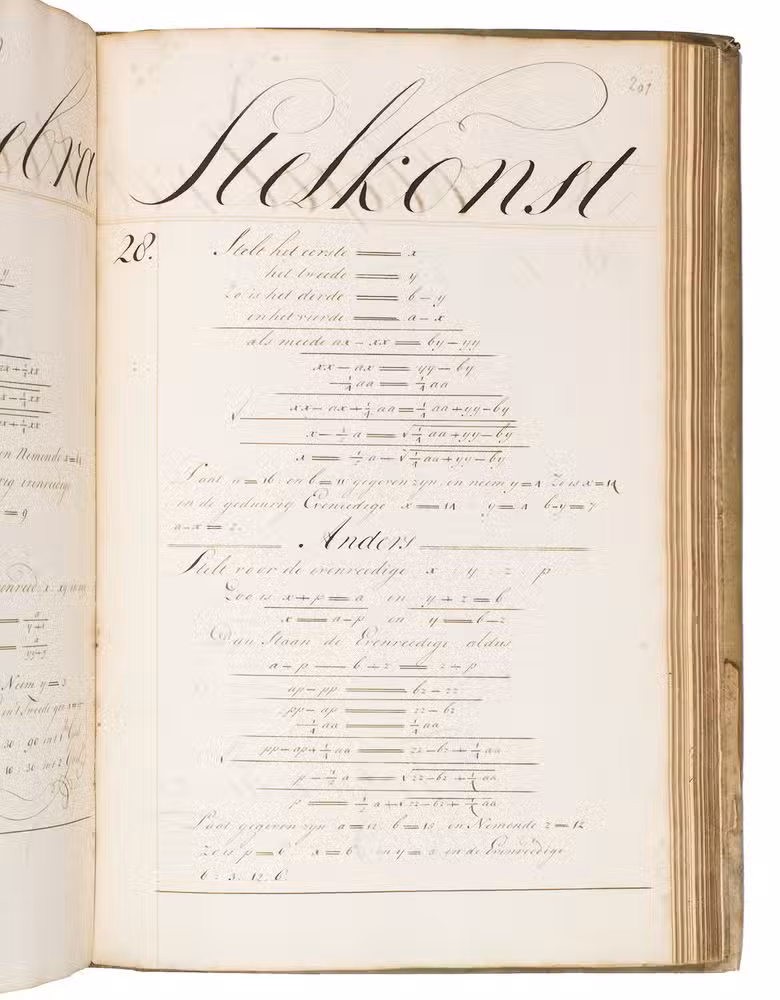 ebra
201
Stelkonst
28. Stelt het eerste = x
het tweede = y
Zo is het derde = b - y
en het vierde = a - x
als meede ax - xx = by - yy
xx - ax = yy - by
¼aa = ¼aa
√ xx - ax + ¼aa = ¼aa + yy - by
x - ½a = √¼aa + yy - by
x = ½a + √¼aa + yy - by
Laat a = 16 en b = 11 gegeven zyn, en neem y = 4 Zo is x = 14
en de gedunrig Evenredige x = 14 y = 4 b - y = 7
a - x = 2.
Anders
Stelt voor de evenreedige x y z p
Zoo is x + p = a en y + z = b
x = a - p en y = b - z
Dan Staan de Evenreedige aldus
a - p — b - z = z - p
ap - pp = bz - zz
pp - ap = zz - bz
¼aa = ¼aa
√ pp - ap + ¼aa = zz - bz + ¼aa
p - ½a = √zz - bz + ¼aa
p = ½a + √zz - bz + ¼aa
Laat gegeven zyn a = 12 b = 15 en Nemende z = 12
Zo is p = 6 x = 6 en y = 3 en de Evenreedige
6 : 3 : 12 : 6.